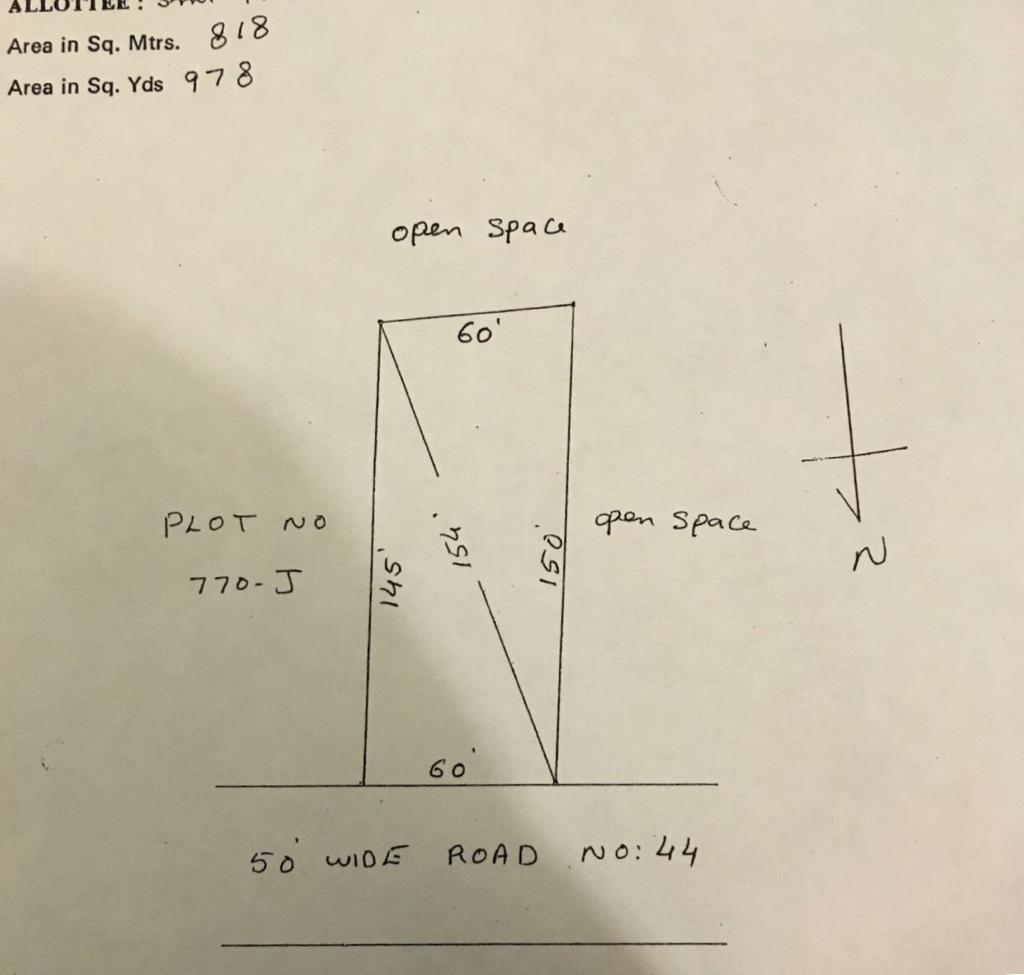 ALLOTTEE :
Area in Sq. Mtrs. 818
Area in Sq. Yds 978
open space
60'
PLOT NO
770-J
145'
154'
150'
open space
N
60'
50' WIDE ROAD NO: 44